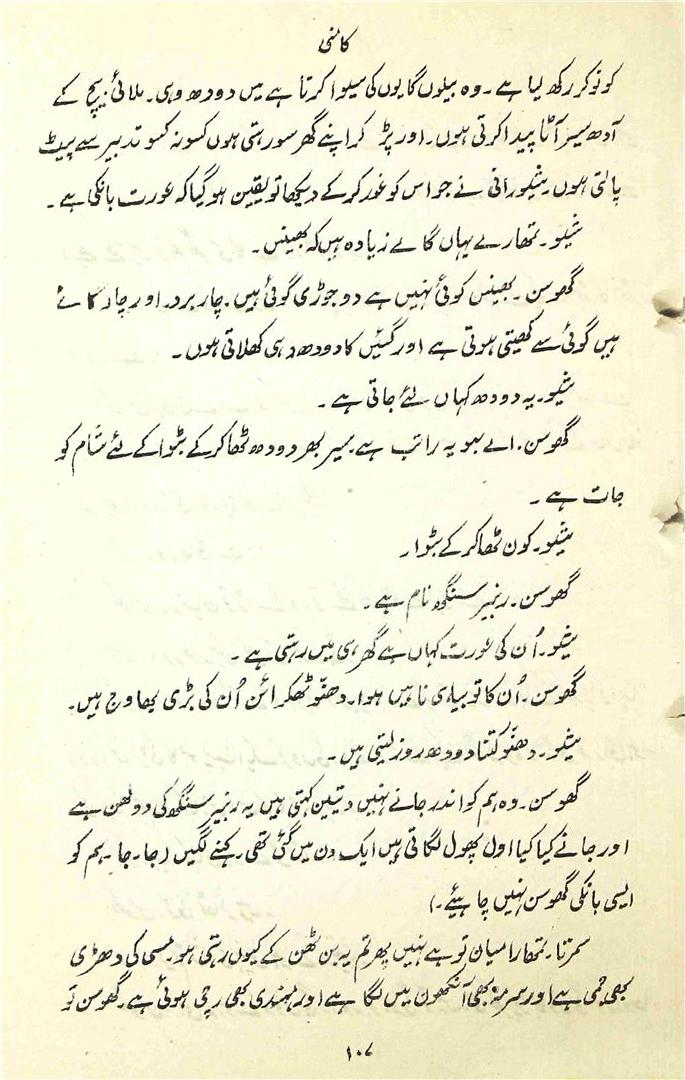 کامنی
کو نوکر رکھ لیا ہے۔ وہ بیلوں گایوں کی سیوا کرتا ہے میں دودھ دہی۔ ملائی بیچ کے
آدھ سیر آٹا پیدا کرتی ہوں۔ اور پڑ کر اپنے گھر سو رہتی ہوں کسو نہ کسو تدبیر سے پیٹ
پالتی ہوں۔ شیو رانی نے جو اس کو غور کر کے دیکھا تو یقین ہو گیا کہ عورت بانکی ہے۔
شیو۔ تمھارے یہاں گائے زیادہ ہیں کہ بھینس۔
گھوسن۔ بھینس کوئی نہیں ہے دو جوڑی گوئی ہیں۔ چار بردا اور چار گائے
ہیں گوئی سے کھیتی ہوتی ہے اور گئیں کا دودھ دہی کھلاتی ہوں۔
شیو۔ یہ دودھ کہاں لئے جاتی ہے۔
گھوسن۔ اے ببو یہ راتب ہے سیر بھر دودھ ٹھاکر کے بٹوا کے لئے شام کو
جات ہے۔
شیو۔ کون ٹھاکر کے بٹوا۔
گھوسن۔ رنبیر سنگھ نام ہے۔
شیو۔ اُن کی عورت کہاں ہے گھر ہی میں رہتی ہے۔
گھوسن۔ اُن کا تو بیاہ ہی ناہیں ہوا۔ دھنّو ٹھکرائن اُن کی بڑی بھاوج ہیں۔
شیو۔ دھنّو کتنا دودھ روز لیتی ہیں۔
گھوسن۔ وہ ہم کو اندر جانے نہیں دیتین کہتی ہیں یہ رنبیر سنگھ کی دولھن ہے
اور جانے کیا کیا اول پھول لگاتی ہیں ایک دن میں گئی تھی۔ کہنے لگیں (جا۔ جا۔ ہم کو
ایسی بانکی گھوسن نہیں چاہئیے۔)
سمرتا۔ تمھارا میان تو ہے نہیں پھر تم یہ بن ٹھن کے کیوں رہتی ہو۔ مسی کی دھڑی
بھی جمی ہے اور سرمہ بھی آنکھون میں لگا ہے اور مہندی بھی رچی ہوئی ہے۔ گھوسن تو
۱۰۷